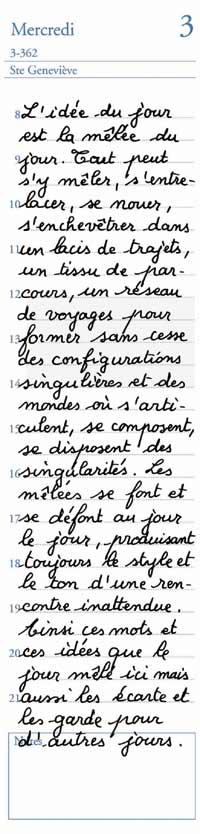 Mercredi 3
3-362
Ste Geneviève
8 L'idée du jour
est la mêlée du
9 jour. Tout peut
s'y mêler, s'entre-
10 lacer, se nouer,
s'enchevêtrer dans
11 un lacis de trajets,
un tissu de par-
12 cours, un réseau
de voyages pour
13 former sans cesse
des configurations
14 singulières et des
mondes où s'arti-
15 culent, se composent,
se disposent des
16 singularités. Les
mêlées se font et
17 se défont au jour
le jour, produisant
18 toujours le style et
le ton d'une ren-
19 contre inattendue.
Ainsi ces mots et
20 ces idées que le
jour mêle ici mais
21 aussi les écarte et
les garde pour
Notes
d'autres jours.